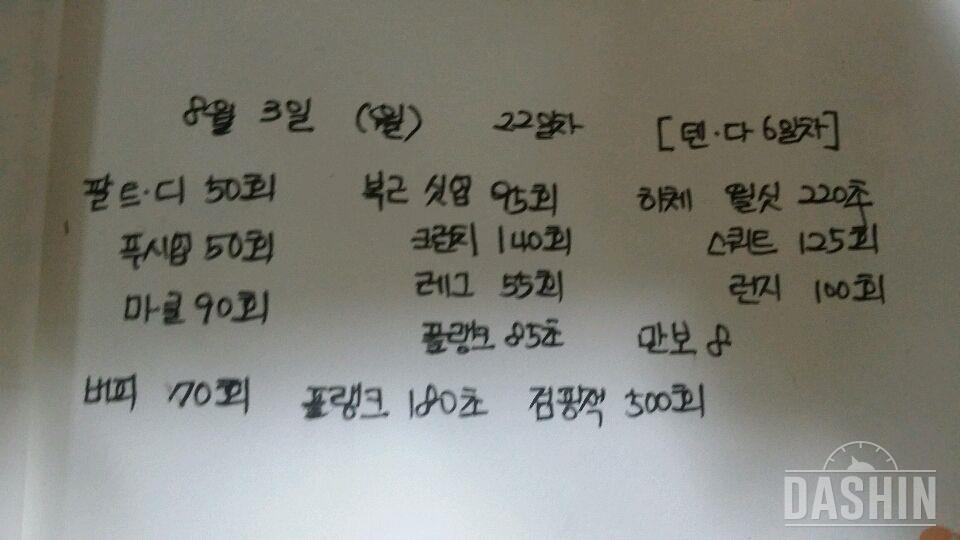 8월 3일 (월) 22일차 [덴·다 6일차]
팔 트·디 50회 복근 싯업 95회 하체 월싯 220초
푸시업 50회 크런치 140회 스쿼트 125회
마클 90회 레그 55회 런지 100회
플랭크 85초 만보 8
버피 70회 플랭크 180초 점핑잭 500회
DASHIN